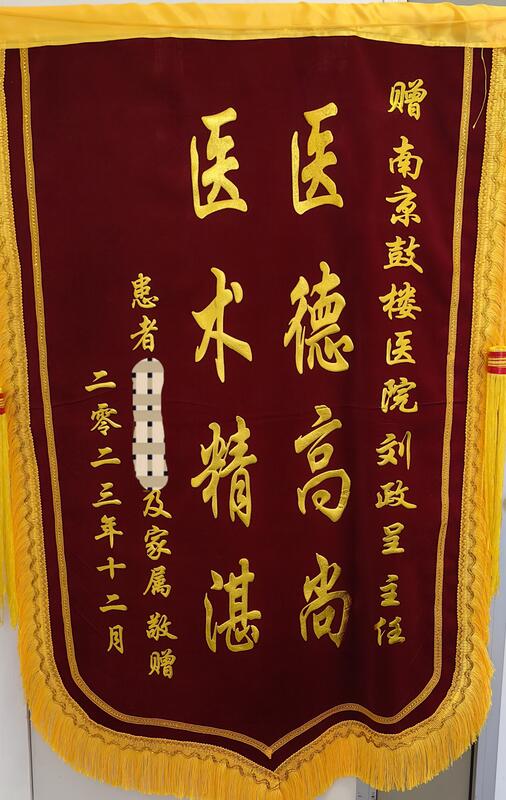 赠南京鼓楼医院刘政呈主任
医德高尚
医术精湛
患者
及家属敬赠
二零二三年十二月